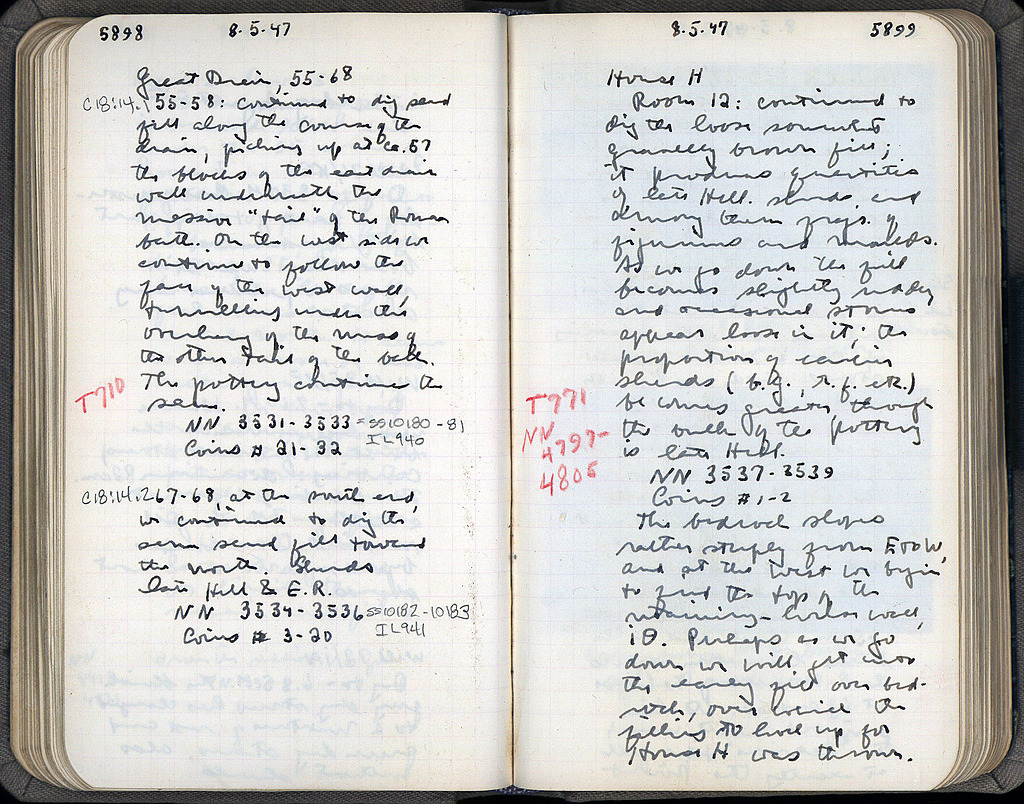 5898 8.5.47
Great Drain, 55-68
C18:14.1 55-58: continued to dig sand
fill along the course of the
drain, picking up at ca. 57
the blocks of the east drain
wall underneath the
massive "tail" of the Roman
bath. On the west side we
continue to follow the
face of the west wall,
tunnelling under the
overhang of the mass of
the other tail of the bath.
T710 The pottery continues the
same.
NN 3531-3533 = SS10180-81
IL940
Coins # 21-32
C18:14.2 67-68, at the south end,
we continued to dig the
same sand fill toward
the north. Sherds
late Hell & E.R.
NN 3534-3536 SS10182-10183
IL941
Coins # 3-20
8.5.47 5899
House H
Room 12: continued to
dig the loose somewhat
gravelly brown fill;
it produces quantities
of late Hell. sherds, and
among them frags. of
figurines and moulds.
As we go down the fill
becomes slightly muddy
and occasional stones
appear loose in it; the
proportion of earlier
sherds (b.g., r.f. etc.)
T771 becomes greater, though
NN the bulk of the pottery
4797- is late Hell.
4805 NN 3537-3539
Coins #1-2
The bedrock slopes
rather steeply from E to W,
and at the west we begin
to find the top of the
retaining- wall,
10. Perhaps as we go
down we will get into
the early fill over bed-
rock, over which the
filling to level up for
House H was thrown.